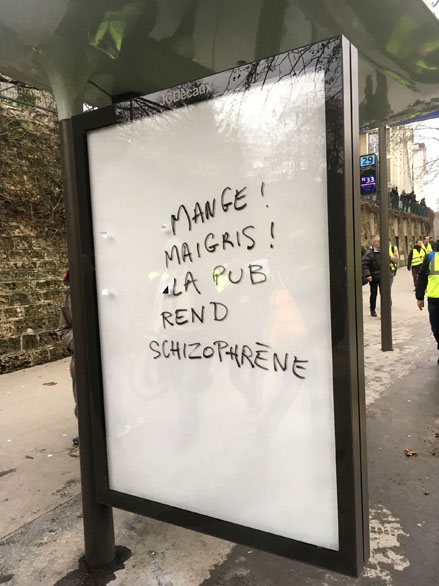 JCDecaux
29
N 33
MANGE !
MAIGRIS !
LA PUB
REND
SCHIZOPHRÈNE